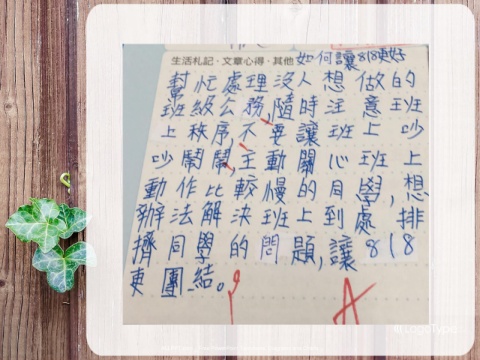 生活札記·文章心得·其他 如何讓818更好
幫忙處理沒人想做的
班級公務,隨時注意班
上秩序不要讓班上吵
吵鬧鬧,主動關心班上
動作比較慢的同學,想
辦法解決班上到處排
擠同學的問題,讓818
更團結。
A